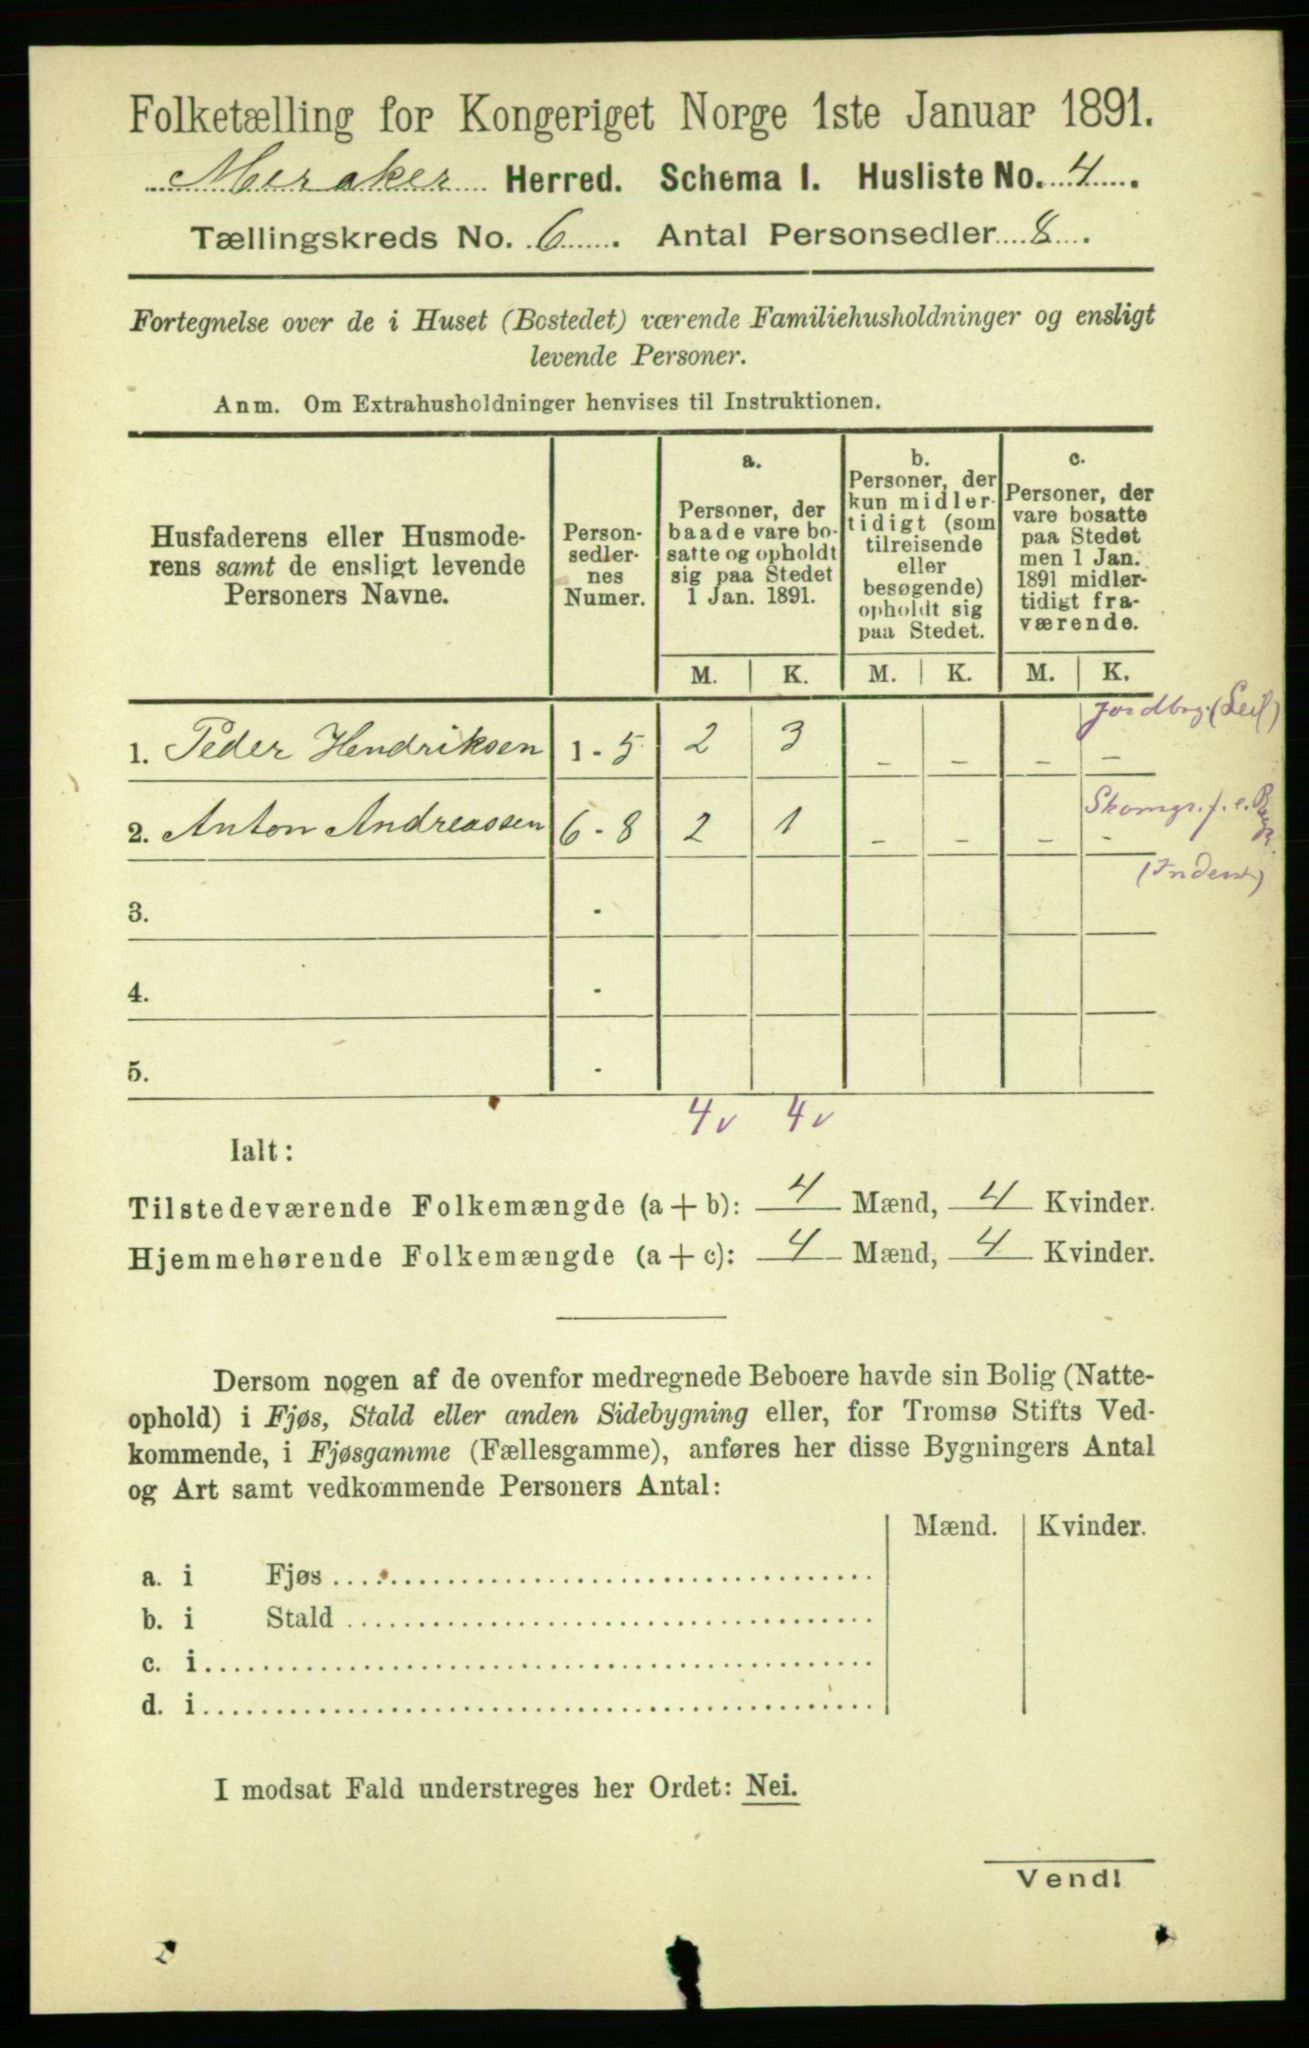 Folketælling for Kongeriget Norge 1ste Januar 1891.
Meraker Herred. Schema 1. Husliste No. 4.
Tællingskreds No. 6. Antal Personsedler 8.
Fortegnelse over de i Huset (Bostedet) værende Familiehusholdninger og ensligt
levende Personer.
Anm. Om Extrahusholdninger henvises til Instruktionen.
Husfaderens eller Husmode-
rens samt de ensligt levende
Personers Navne.
Person-
sedler-
nes
Numer.
a.
Personer, der
baade vare bo-
satte og opholdt
sig paa Stedet
1 Jan. 1891.
b.
Personer, der
kun midler-
tidigt (som
tilreisende
eller
besøgende)
opholdt sig
paa Stedet.
c.
Personer, der
vare bosatte
paa Stedet
men 1 Jan.
1891 midler-
tidigt fra-
værende.
M. K. M. K. M. K.
Jordbrg. (Leil)
1. Peder Hendriksen 1 - 5 2 3 - - - -
Skomgr. f. e.
2. Anton Andreassen 6 - 8 2 1 - - - -
(Inderst)
3. -
4. -
5. -
4 v 4 v
Ialt:
Tilstedeværende Folkemængde (a + b): 4 Mænd, 4 Kvinder.
Hjemmehørende Folkemængde (a + c): 4 Mænd, 4 Kvinder.
Dersom nogen af de ovenfor medregnede Beboere havde sin Bolig (Natte-
ophold) i Fjøs, Stald eller anden Sidebygning eller, for Tromsø Stifts Ved-
kommende, i Fjøsgamme (Fællesgamme), anføres her disse Bygningers Antal
og Art samt vedkommende Personers Antal:
Mænd. Kvinder.
a. i Fjøs
b. i Stald
c. i
d. i
I modsat Fald understreges her Ordet: Nei.
Vend!